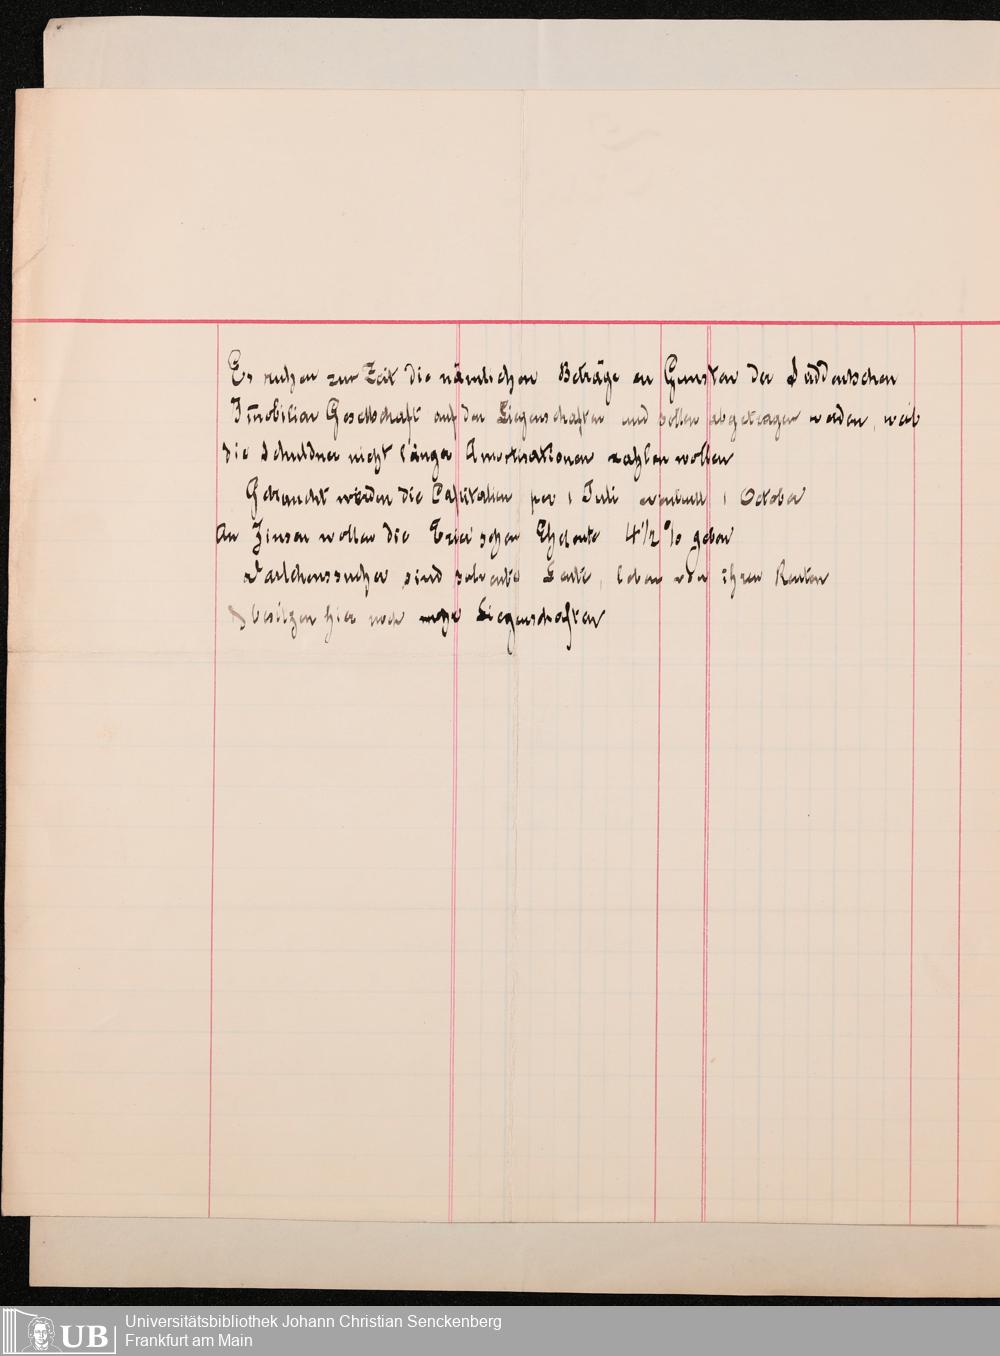 Es ruhen zur Zeit die nämlichen Beträge zu Gunsten der Süddeutschen
Im̅obilien Gesellschaft auf den Liegenschaften und sollen abgetragen werden, weil
die Schuldner nicht länger Amortisationen zahlen wollen
Gebraucht würden die Capitalien per 1 Juli eventuell 1 October
An Zinsen wollen die schen Eheleute 4 1/2 % geben
Darlehenssucher sind solvente Leute, leben von ihren Renten
& besitzen hier noch mehr Liegenschaften
UB
Universitätsbibliothek Johann Christian Senckenberg
Frankfurt am Main